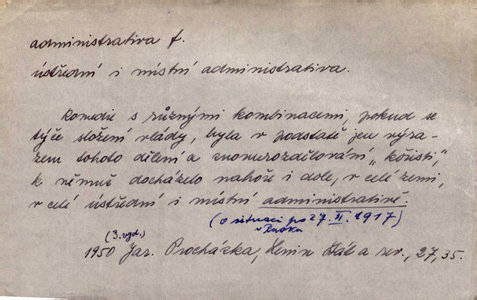 administrativa f.
ústřední i místní administrativa.
Komedie s různými kombinacemi, pokud se
týče složení vlády, byla v podstatě jen výra-
zem tohoto dělení a znovurozdělování „kořisti,"
k němuž docházelo nahoře i dole, v celé zemi,
v celé ústřední i místní administrativě.
(o situaci po 27. II. 1917)
v Rusku
(3. vyd.)
1950 Jar. Procházka, Lenin Stát a rev., 27, 35.